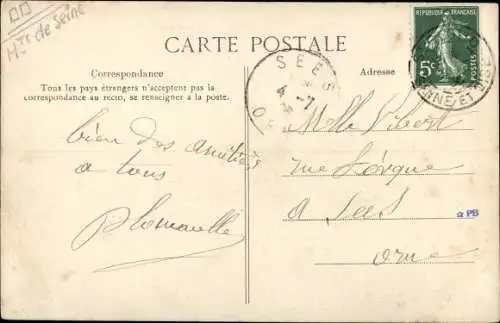 Hts de Seine
CARTE POSTALE
RÉPUBLIQUE FRANÇAISE
5c
POSTES
SEINE ET OISE
SEES
4 -7
Correspondance
Tous les pays étrangers n'acceptent pas la
correspondance au recto, se renseigner à la poste.
Adresse
bien des amitiés
a tous
Melle Vibert
rue
a Sées
Orne
PB